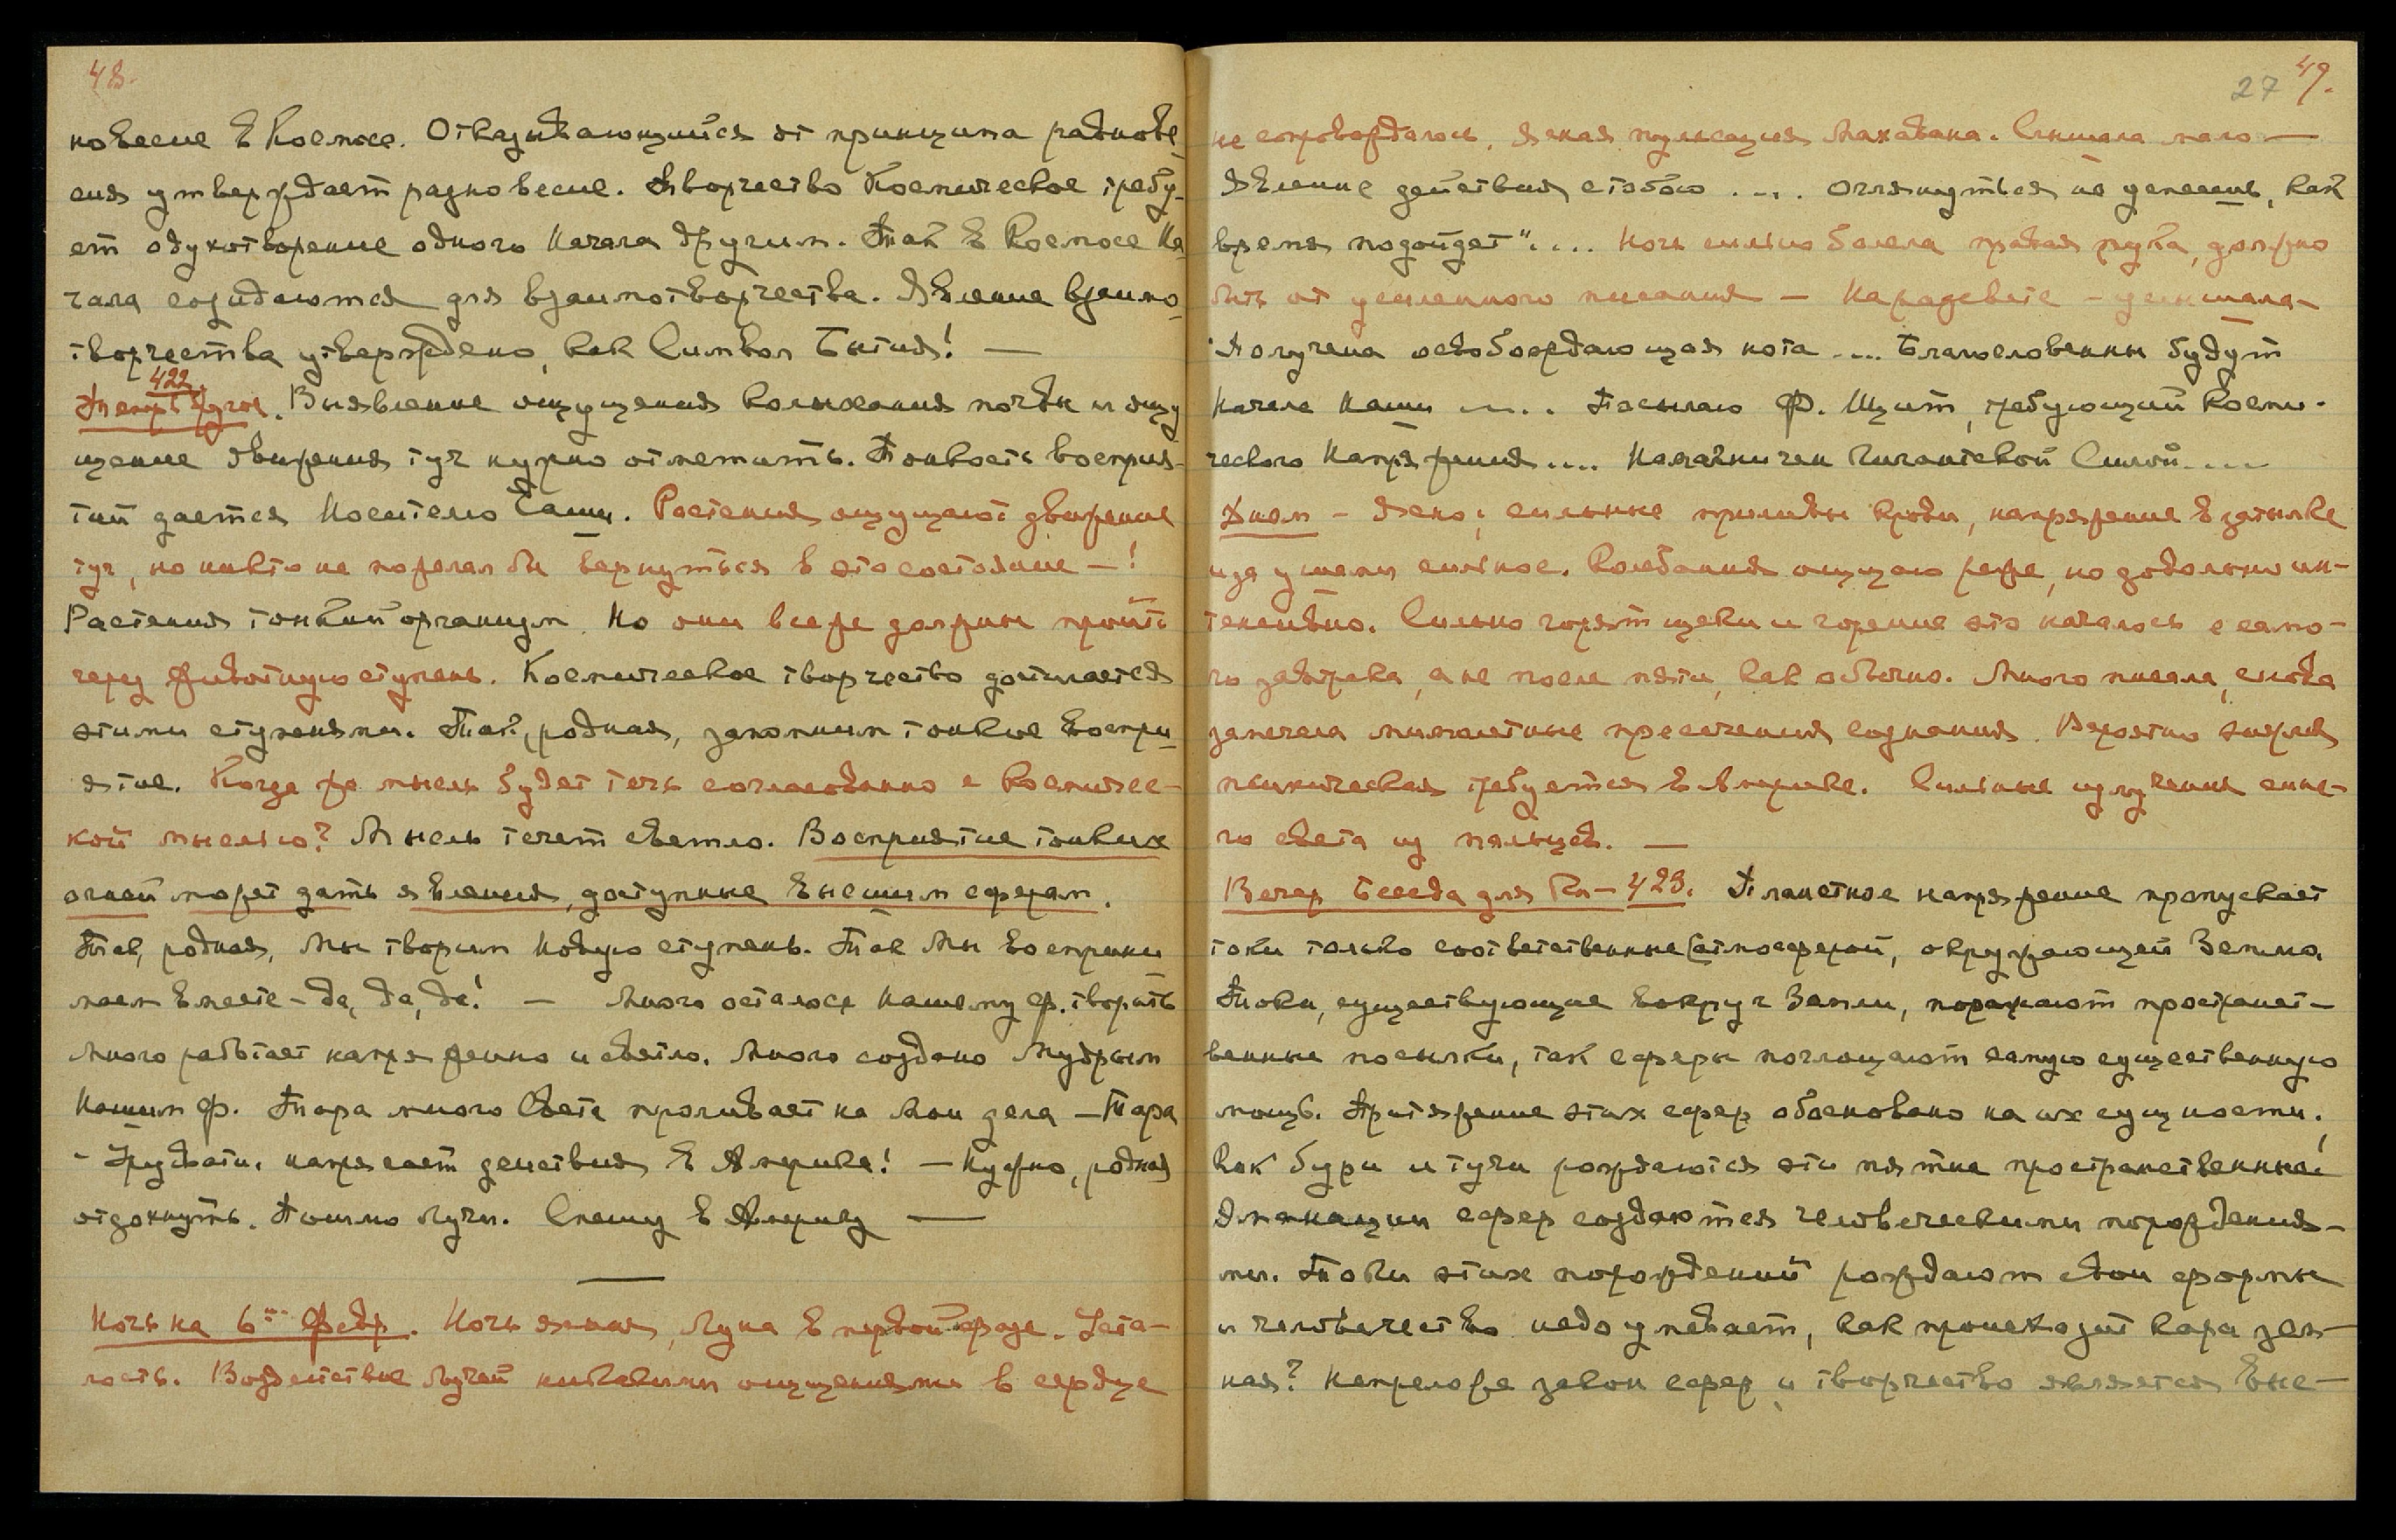 48.
новесие в Космосе. Отказывающийся от принципа равнове-
сия утверждает разновесие. Творчество Космическое требу-
ет одухотворение одного Начала другим. Так в Космосе На-
чала созидаются для взаимотворчества. Явление взаимо-
творчества утверждено, как Символ Бытия! —
422.
Теперь другое. Выявление ощущения колыхания почвы и ощу-
щение движения туч нужно отметить. Тонкость восприя-
тий дается Носителю Чаши. Растения ощущают движение
туч, но никто не пожелал бы вернуться в это состояние — !
Растения тонкий организм. Но они все же должны пройти
через животную ступень. Космическое творчество достигается
этими ступенями. Так, родная, запомним тонкое воспри-
ятие. Когда же мысль будет течь согласованно с Космичес-
кой мыслью? Мысль течет светло. Восприятие тонких
огней может дать явления, доступные высшим сферам.
Так, родная, Мы творим Новую ступень. Так Мы восприни-
маем вместе – да, да, да! — Много осталось Нашему Ф. творить
Много работает напряженно и светло. Много создано Мудрым
Нашим Ф. Тара много Света проливает на Мои дела — Тара
– Урусвати. напрягает действия в Америке! — Нужно, родная
отдохнуть. Пошлю Лучи. Спешу в Америку —
Ночь на 6ое Февр. Ночь ясная, Луна в первой фазе. Уста-
лость. Воздействие Лучей никакими ощущениями в сердце
27 49.
не сопровождалось. Ясная пульсация Махавана. Слышала мало —
Явление действия с тобою .... Оглянуться не успеешь, как
время подойдет".... Ночь сильно болела правая рука, должно
быть от усиленного писания — На рассвете – услышала –
"Получена освобождающая нота .... Благословенны будут
Начала Наши .... Посылаю Ф. Щит, требующий Косми-
ческого Напряжения ....  Гигантской Силой ....
Днем – Ясно; сильные приливы крови, напряжение в затылке
и за ушами сильное. Колебания ощущаю реже, но довольно ин-
тенсивно. Сильно горят щеки и горение это началось с само-
го завтрака, а не после пяти, как обычно. Много писала, снова
замечала мимолетные пресечения сознания. Вероятно энергия
психическая требуется в Америке. Сильные излучения сине-
го света из пальцев. —
Вечер Беседа для Кн – 423. Планетное напряжение пропускает
токи только соответственные с атмосферой, окружающей Землю.
Токи, существующие вокруг Земли, поражают пространст-
венные посылки, так сферы поглощают самую существенную
мощь. Притяжение этих сфер обосновано на их сущности.
Как бури и тучи рождаются эти пятна пространственные!
Эманации сфер создаются человеческими порождения-
ми. Токи этих порождений рождают свои формы
и человечество недоумевает, как происходит кара зем-
ная? Непреложен закон сфер и творчество является выс-